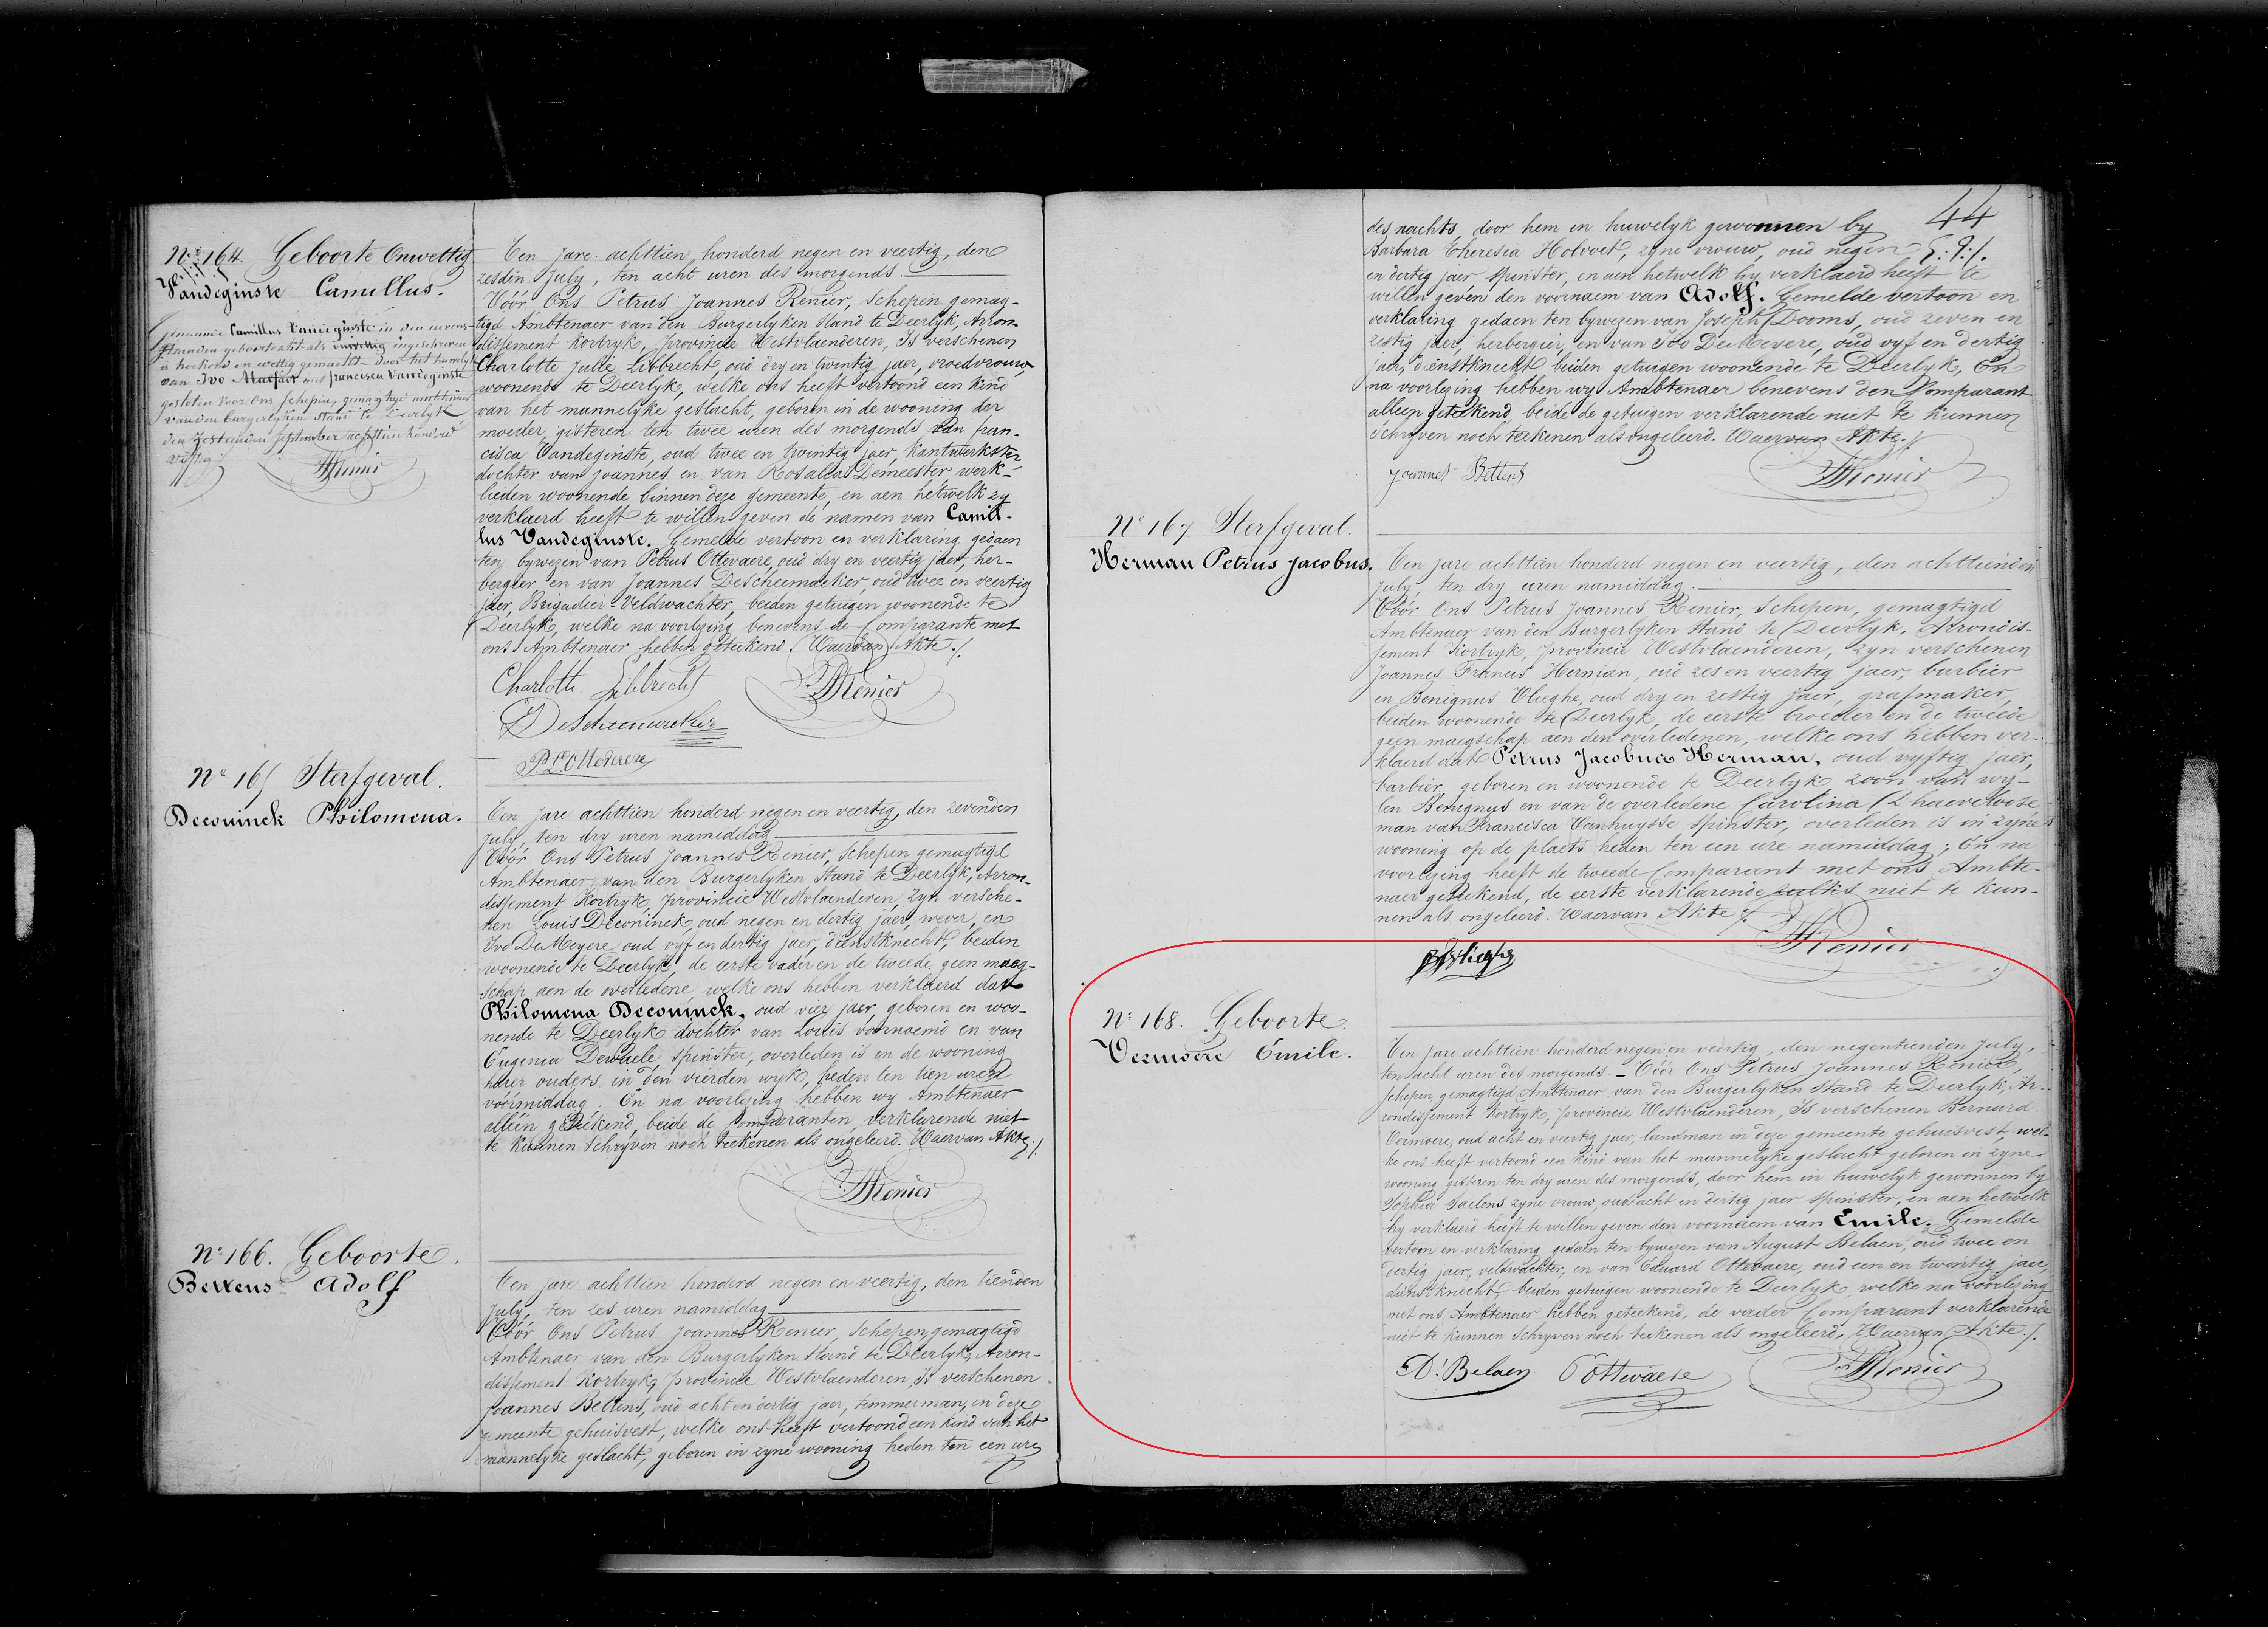 Nº 164. Geboorte Onwettig
Vandeginste Camillus.
genaamde Camillus Vandeginste in den nevens-
staenden geboorteakt als onwettig ingeschreven
is herkend en wettig gemaekt door het huwelyk
van Ivo met francisca Vandeginste
gesloten voor ons schepen, gemagtigd ambtenaer
van den burgerlyken stand te Deerlyk
den september achttien honderd
vyftig
Renier
Ten jare achttien honderd negen en veertig, den
zesden July, ten acht uren des morgends
Vóór Ons Petrus Joannes Renier, Schepen gemag-
tigd Ambtenaer van den Burgerlyken Stand te Deerlyk, Arron-
dissement Kortryk, provincie Westvlaenderen, Is verschenen
Charlotte Julie Libbrecht, oud dry en twintig jaer, vroedvrouw,
woonende te Deerlyk, welke ons heeft vertoond een kind
van het mannelyke geslacht, geboren in de wooning der
moeder, gisteren ten twee uren des morgends van fran-
cisca Vandeginste, oud twee en twintig jaer, kantwerkster
dochter van Joannes en van Rosalia Demeester werk-
lieden woonende binnen deze gemeente, en aen hetwelk zy
verklaerd heeft te willen geven de namen van Camil-
lus Vandeginste. Gemelde vertoon en verklaring gedaen
ten bywezen van Petrus Ottevaere, oud dry en veertig jaer, her-
bergier en van Joannes Descheemaeker, oud twee en veertig
jaer, Brigadier-Veldwachter, beiden getuigen woonende te
Deerlyk, welke na voorlezing benevens de Comparante met
ons Ambtenaer hebben geteekend. Waervan Akte ./.
Charlotte Libbrecht Renier
DeScheemaeker
P Ottevaere
Nº 165 Sterfgeval.
Deconinck Philomena.
Ten jare achttien honderd negen en veertig, den zevenden
July, ten dry uren namiddag
Vóór Ons Petrus Joannes Renier, Schepen gemagtigd
Ambtenaer van den Burgerlyken Stand te Deerlyk, Arron-
dissement Kortryk, provincie Westvlaenderen, Zyn versche-
nen Louis Deconinck, oud negen en dertig jaer, wever, en
Ivo De Meyere oud vyf en dertig jaer, dienstknecht, beiden
woonende te Deerlyk, de eerste vader en de tweede geen maeg-
schap aen de overledene welke ons hebben verklaerd dat
Philomena Deconinck, oud vier jaer, geboren en woo-
nende te Deerlyk dochter van Louis voornoemd en van
Eugenia Dewaele, spinster, overleden is in de wooning
harer ouders in den vierden wyk, heden ten tien uren
voormiddag. En na voorlezing hebben wy Ambtenaer
alleen geteekend, beide de Comparanten verklarende niet
te kunnen Schryven noch teekenen als ongeleerd. Waervan Akte ./.
Renier
Nº 166. Geboorte.
Bettens Adolf
Ten jare achttien honderd negen en veertig, den tienden
July, ten zes uren namiddag
Vóór Ons Petrus Joannes Renier, Schepen gemagtigd
Ambtenaer van den Burgerlyken Stand te Deerlyk, Arron-
dissement Kortryk, provincie Westvlaenderen, Is verschenen
Joannes Bettens, oud acht en dertig jaer, timmerman, in deze
gemeente gehuisvest, welke ons heeft vertoond een kind van het
mannelyke geslacht, geboren in zyne wooning heden ten een ure
44
des nachts, door hem in huwelyk gewonnen by
Barbara Theresia Holvoet, zyne vrouw, oud negen
en dertig jaer spinster, en aen hetwelk hy verklaerd heeft te
willen geven den voornaem van Adolf. Gemelde vertoon en
verklaring gedaen ten bywezen van Joseph Dooms, oud zeven en
zestig jaer, herbergier, en van Ivo De Meyere, oud vyf en dertig
jaer, dienstknecht beiden getuigen woonende te Deerlyk, En
na voorlezing hebben wy Ambtenaer benevens den Comparant
alleen geteekend beide de getuigen verklarende niet te kunnen
Schryven noch teekenen als ongeleerd. Waervan Akte ./.
Joannes Bettens Renier
Nº 167 Sterfgeval.
Herman Petrus Jacobus.
Ten jare achttien honderd negen en veertig, den achttienden
July, ten dry uren namiddag.
Vóór Ons Petrus Joannes Renier, Schepen, gemagtigd
Ambtenaer van den Burgerlyken Stand te Deerlyk, Arrondis-
sement Kortryk, provincie Westvlaenderen, zyn verschenen
Joannes Francis Herman, oud zes en veertig jaer, barbier
en Benignus Vlieghe, oud dry en zestig jaer, grafmaker,
beiden woonende te Deerlyk, de eerste broeder en de tweede
geen maegschap aen den overledenen, welke ons hebben ver-
klaerd dat Petrus Jacobus Herman, oud vyftig jaer,
barbier, geboren en woonende te Deerlyk zoon van wy-
len Benignus en van de overledene Carolina Dhaeveloose
man van Francisca Vanhuysse spinster, overleden is in zyne
wooning op de plaets heden ten een ure namiddag; En na
voorlezing heeft de tweede Comparant met ons Ambte-
naer geteekend, de eerste verklarende zulks niet te kun-
nen als ongeleerd. Waervan Akte ./.
Renier
B Vlieghe
Nº 168. Geboorte.
Vermoere Emile.
Ten jare achttien honderd negen en veertig, den negentienden July,
ten acht uren des morgends - Vóór Ons Petrus Joannes Renier,
Schepen, gemagtigd Ambtenaer van den Burgerlyken Stand te Deerlyk, Ar-
rondissement Kortryk, provincie Westvlaenderen, Is verschenen Bernard
Vermoere, oud acht en veertig jaer, landman in deze gemeente gehuisvest, wel-
ke ons heeft vertoond een kind van het mannelyke geslacht geboren in zyne
wooning gisteren ten dry uren des morgends, door hem in huwelyk gewonnen by
Sophia Saelens zyne vrouw, oud acht en dertig jaer spinster, en aen hetwelk
hy verklaerd heeft te willen geven den voornaem van Emile. Gemelde
vertoon en verklaring gedaen ten bywezen van August Belaen, oud twee en
dertig jaer, veldwachter, en van Eduard Ottevaere, oud een en twintig jaer,
dienstknecht, beiden getuigen woonende te Deerlyk, welke na voorlezing
met ons Ambtenaer hebben geteekend, de vader Comparant verklarende
niet te kunnen Schryven noch teekenen als ongeleerd. Waervan Akte ./.
A. Belaen E Ottevaere Renier